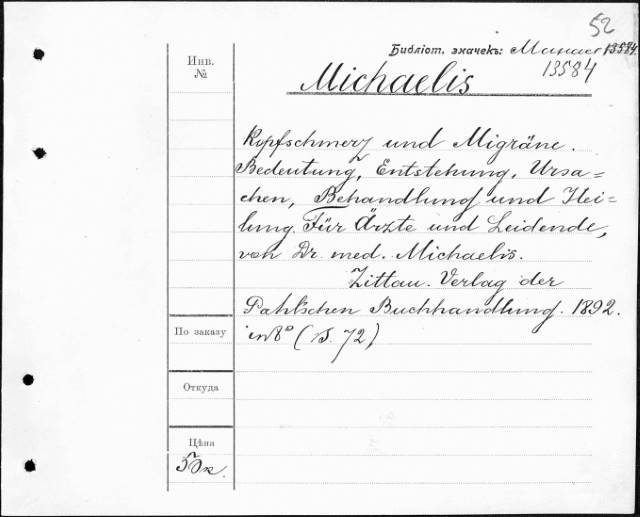 52
Библіот. значекъ: Минаев 13584.
13584
Инв.
№
Michaelis
Kopfschmerz und Migräne.
Bedeutung, Entstehung, Ursa=
chen, Behandlung und Hei=
lung. Für Ärzte und Leidende,
von Dr. med. Michaelis.
Zittau. Verlag der
Pahl'schen Buchhandlung. 1892.
in 8° (S. 72)
По заказу
Откуда
Цѣна
50к.